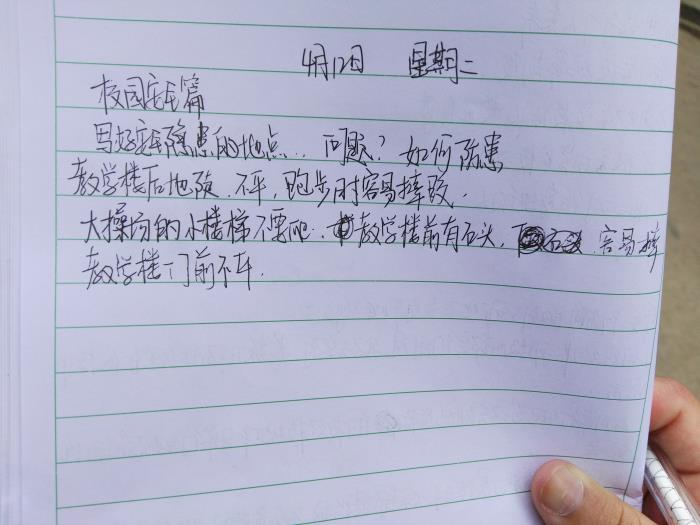 4月12日 星期二
校园安全篇
写好安全隐患的地点... 问题? 如何除患
教学楼后地陡.不平,跑步时容易摔跤.
大操场的小楼梯不要爬.教学楼前有石头,容易摔
教学楼门前不平.